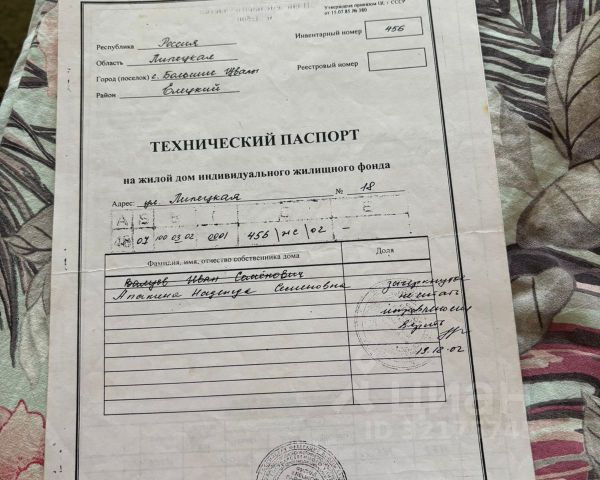 Утверждена приказом ЦСУ СССР
от 15.07.85 № 380
Республика Россия
Инвентарный номер 456
Область Липецкая
Город (поселок) с. Большие Извалы
Реестровый номер
Район Елецкий
ТЕХНИЧЕСКИЙ ПАСПОРТ
на жилой дом индивидуального жилищного фонда
Адрес: ул Липецкая № 18
А Б В Г Д Е
48 07 100 03 02 0001 456 нс 02 –
Фамилия, имя, отчество собственника дома Доля
Иван Семёнович
Надежда Семеновна
зачеркнутое
не считать
исправленному
верить
19.12.02
циан